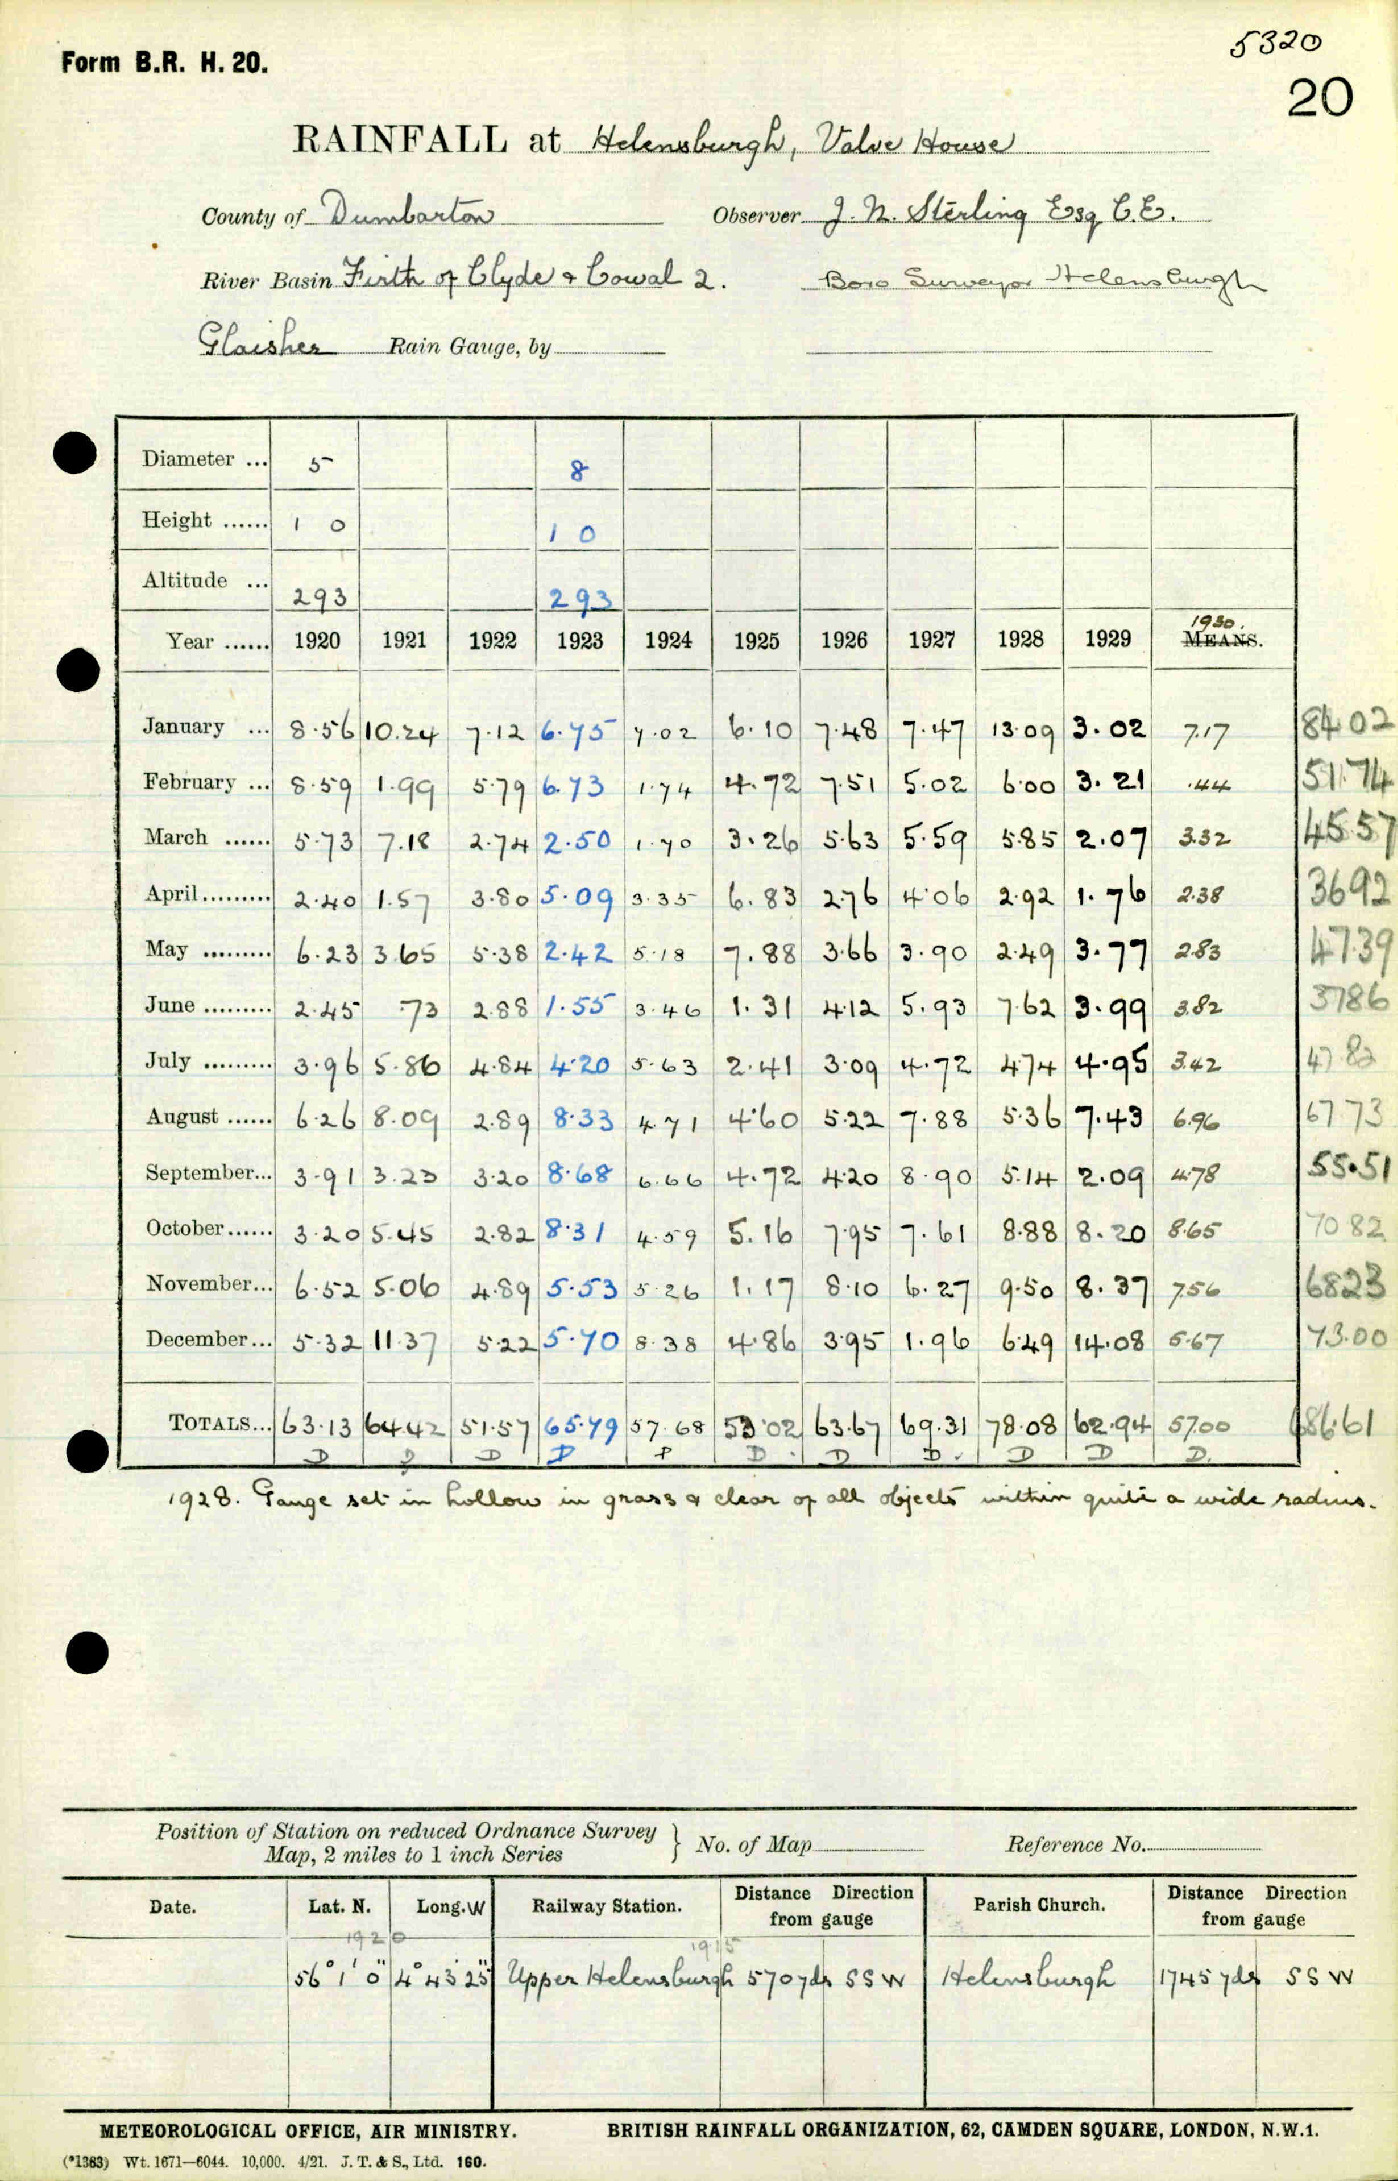 5320
Form B.R. H. 20.
20
RAINFALL at Helensburgh, Valve House
County of Dumbarton Observer J. N. Sterling Esq C.E.
River Basin Firth of Clyde & Cowal 2. Boro Surveyor Helensburgh
Glaisher Rain Gauge, by
Diameter ... 5 8
Height ...... 1 0 1 0
Altitude ... 293 293
Year ...... 1920 1921 1922 1923 1924 1925 1926 1927 1928 1929 1930. MEANS.
January ... 8.56 10.24 7.12 6.75 7.02 6.10 7.48 7.47 13.09 3.02 7.17 84 02
February ... 8.59 1.99 5.79 6.73 1.74 4.72 7.51 5.02 6.00 3.21 .44 51.74
March ...... 5.73 7.18 2.74 2.50 1.70 3.26 5.63 5.59 5.85 2.07 3.32 45.57
April ......... 2.40 1.57 3.80 5.09 3.35 6.83 2.76 4.06 2.92 1.76 2.38 3692
May ......... 6.23 3.65 5.38 2.42 5.18 7.88 3.66 3.90 2.49 3.77 2.83 47.39
June ......... 2.45 .73 2.88 1.55 3.46 1.31 4.12 5.93 7.62 3.99 3.82 3786
July ......... 3.96 5.86 4.84 4.20 5.63 2.41 3.09 4.72 4.74 4.95 3.42 47 82
August ...... 6.26 8.09 2.89 8.33 4.71 4.60 5.22 7.88 5.36 7.43 6.96 67 73
September... 3.91 3.23 3.20 8.68 6.66 4.72 4.20 8.90 5.14 2.09 4.78 55.51
October...... 3.20 5.45 2.82 8.31 4.59 5.16 7.95 7.61 8.88 8.20 8.65 70 82
November... 6.52 5.06 4.89 5.53 5.26 1.17 8.10 6.27 9.50 8.37 7.56 6823
December... 5.32 11.37 5.22 5.70 8.38 4.86 3.95 1.96 6.49 14.08 5.67 73.00
TOTALS... 63.13 64.42 51.57 65.79 57.68 53.02 63.67 69.31 78.08 62.94 57.00 686.61
D D D D P D D D D D D.
1928. Gauge set in hollow in grass & clear of all objects within quite a wide radius.
Position of Station on reduced Ordnance Survey
Map, 2 miles to 1 inch Series } No. of Map Reference No.
Date. Lat. N. Long. W Railway Station. Distance Direction from gauge Parish Church. Distance Direction from gauge
1920 1915
56° 1' 0" 4° 43' 25" Upper Helensburgh 570 yds SSW Helensburgh 1745 yds SSW
METEOROLOGICAL OFFICE, AIR MINISTRY. BRITISH RAINFALL ORGANIZATION, 62, CAMDEN SQUARE, LONDON, N.W.1.
(*1383) Wt. 1671—6044. 10,000. 4/21. J. T. & S., Ltd. 160.